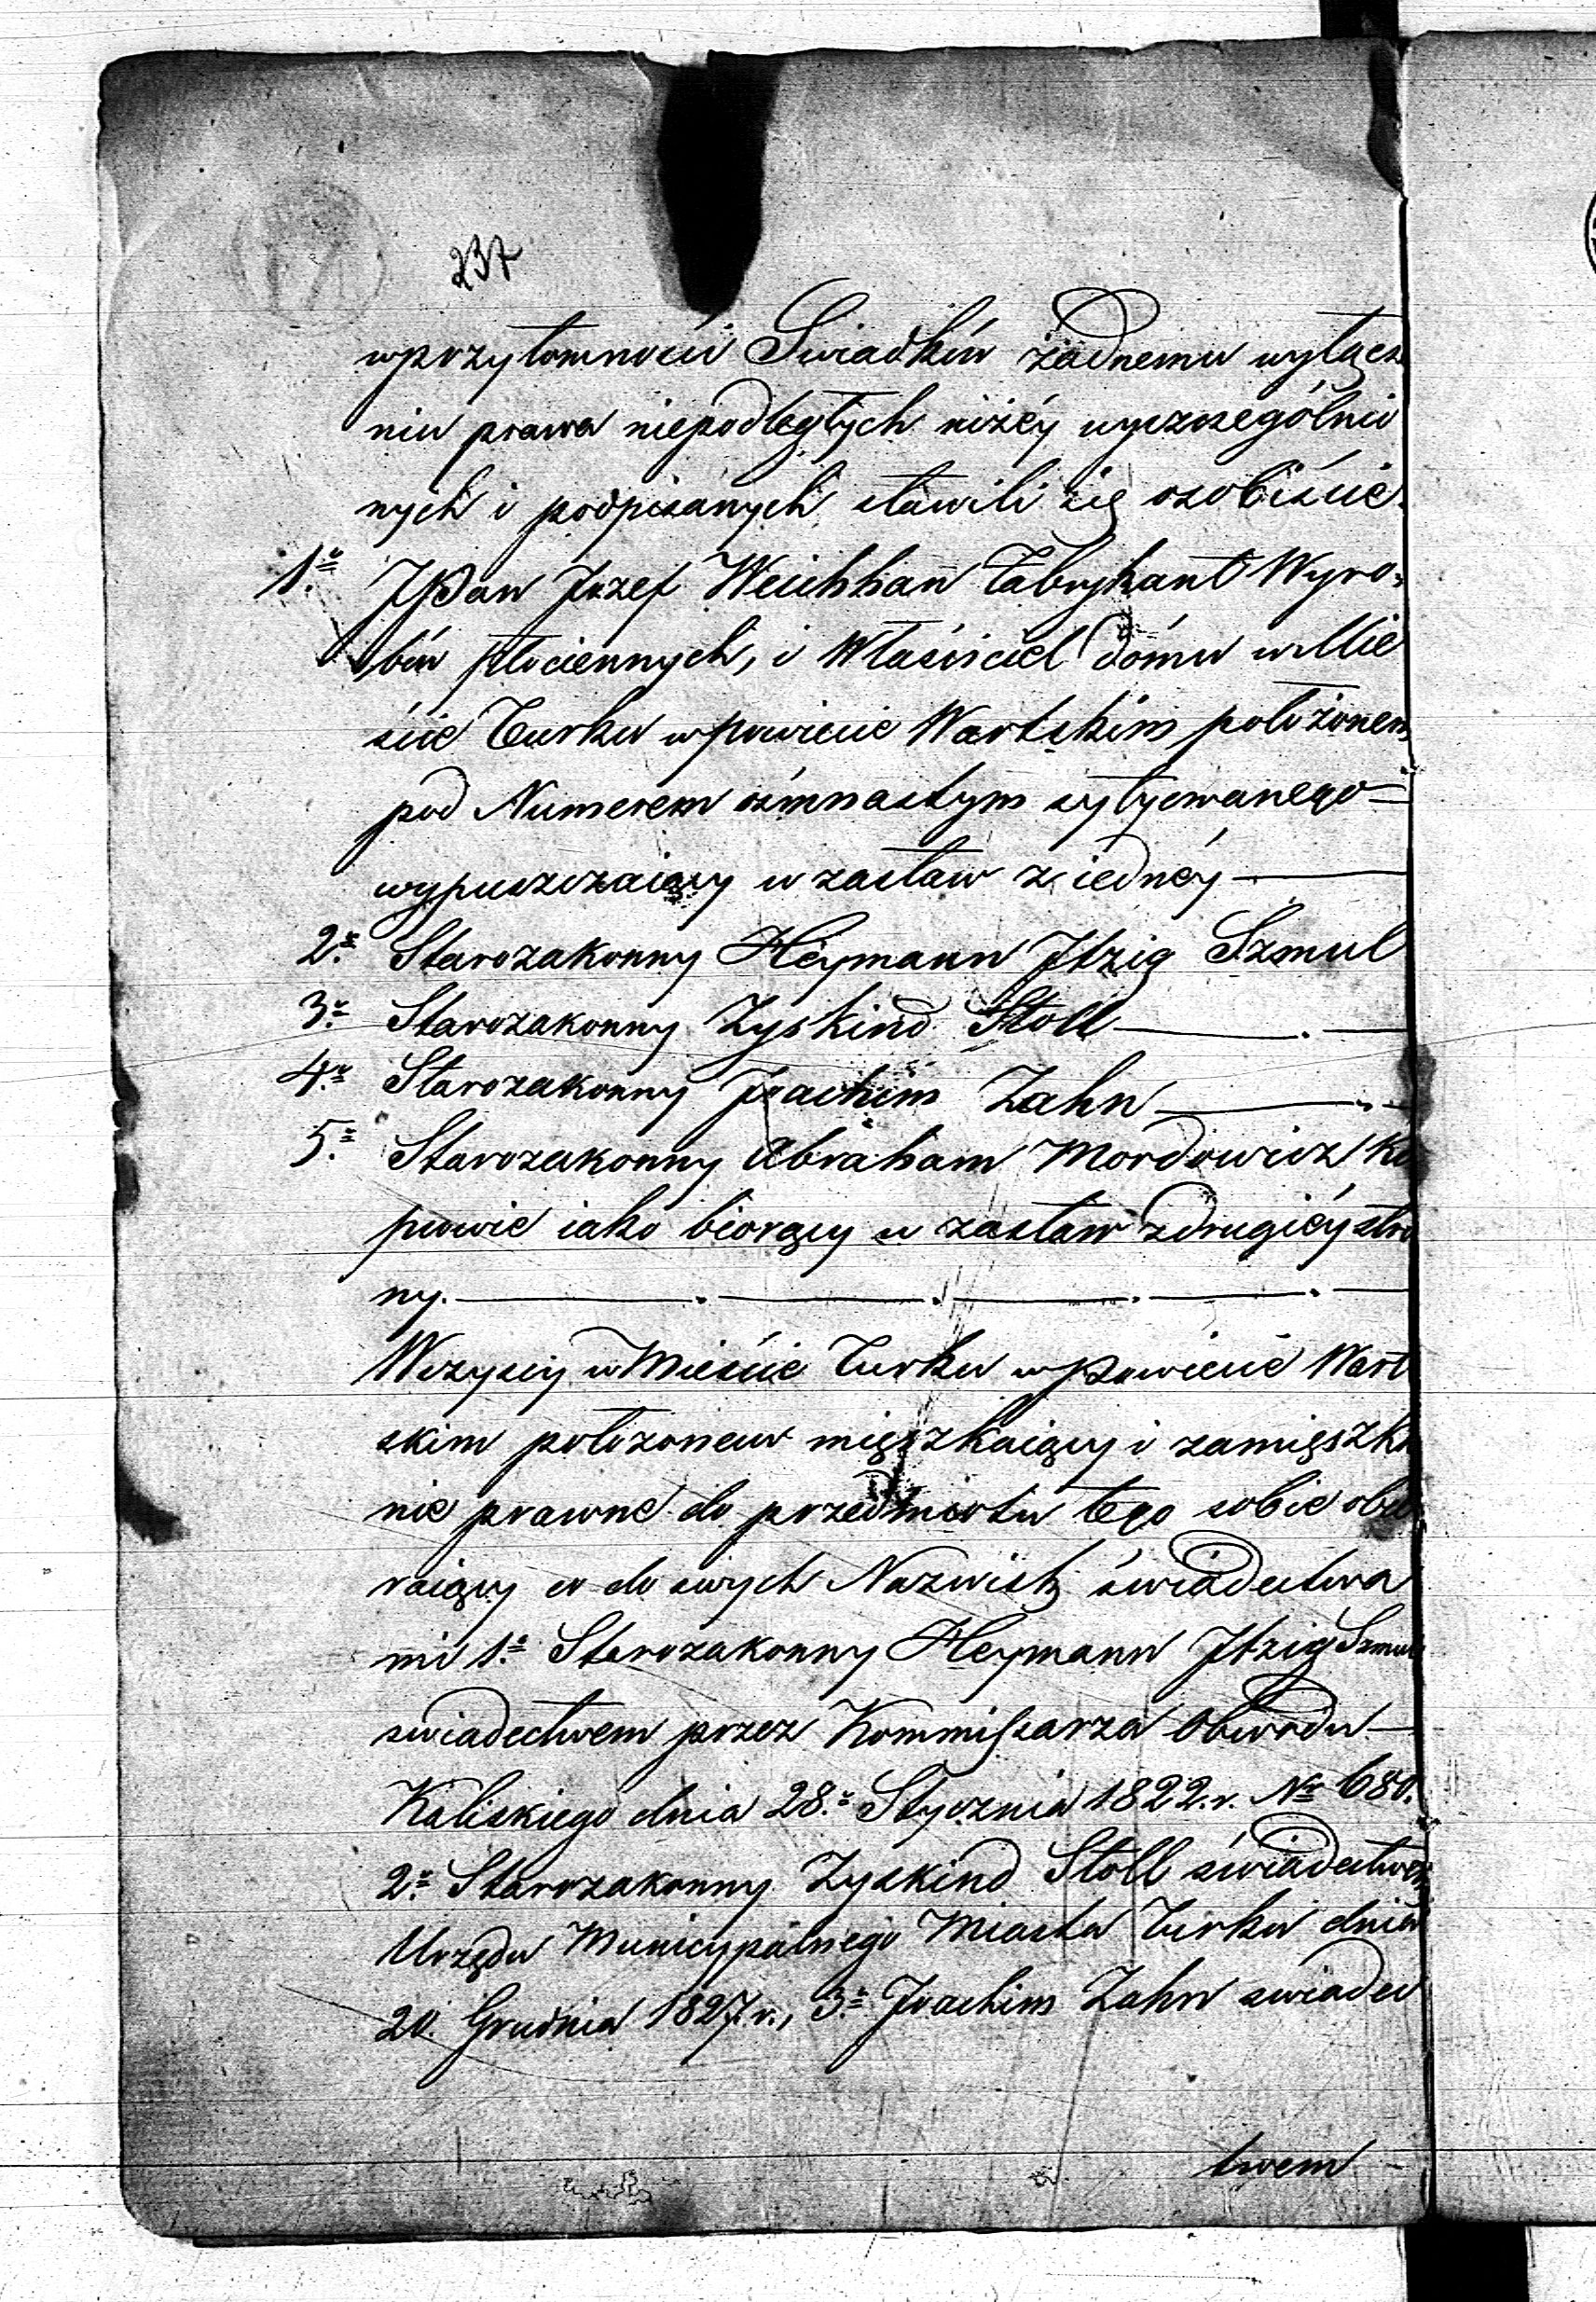 237
wprzytomności Swiadków żadnemu wyłącze
niu prawa niepodległych niżéy wyszczególnio
nych i podpisanych stawili się osobiście.
1º JPan Jozef Weichhan Fabrykant Wyro=
bów płóciennych, i Właściciel dómu w Mie
ście Turku w powiecie Wartskim położonem
pod Numerem ośmnastym sytyowanego=
wypuszczaiący w zastaw z iednéy —
2º Starozakonny Heymann Jtzig Szmul
3º Starozakonny Zyskind Stoll —
4º Starozakonny Joachim Zahn —
5º Starozakonny Abraham Mordowicz Ku
pcowie iako biorący w zastaw z drugiéy stro
ny. —
Wszyscy w Mieście Turku w powiecie Wart
skim położonem mięszkaiący i zamięszka
nie prawne do przedmiotu tego sobie obie
raiący a do swych Nazwisk świadectwa
mi 1º Starozakonny Heymann Jtzig Szmul
swiadectwem przez Kommissarza Obwodu —
Kaliskiego dnia 28º Stycznia 1822. r. Nº 680.
2º Starozakonny Zyskind Stoll świadectwem
Urzędu Municypalnego Miasta Turku dnia
20. Grudnia 1827. r., 3º Joachim Zahn swiadec
twem